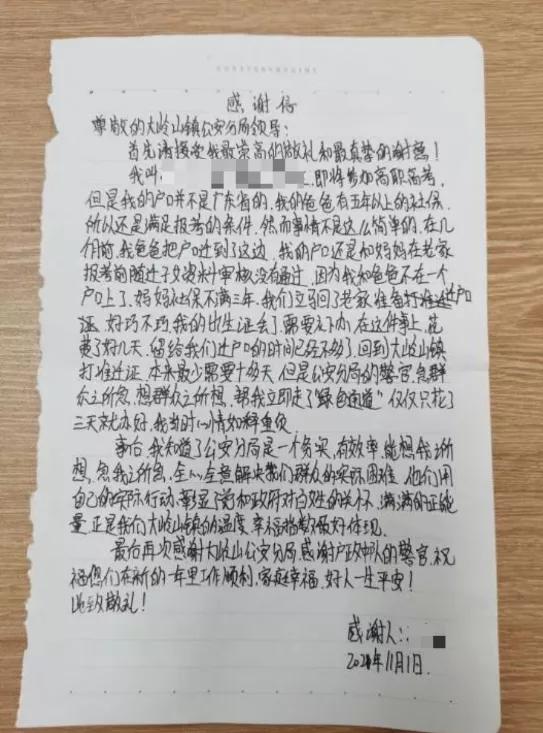 感谢信
尊敬的大岭山镇公安分局领导：
首先请接受我最崇高的敬礼和最真挚的谢意！
我叫 即将参加高职高考，
但是我的户口并不是广东省的，我的爸爸有五年以上的社保，
所以还是满足报考的条件，然而事情不是这么简单的，在几
个月前，我爸爸把户口迁到了这边，我的户口还是和妈妈在老家
报考前随迁子女资料审核没有通过，因为我和爸爸不在一个
户口上了，妈妈社保不满三年，我们立马回了老家准备打准迁户口
证，好巧不巧，我的出生证丢了，需要补办，在这件事上，花
费了好几天，留给我们迁户口的时间已经不够了，回到大岭山镇
打准迁证，本来最少需要十多天，但是公安分局的警官，急群
众之所急，想群众之所想，帮我立即走了“绿色通道”仅仅只花了
三天就办好，我当时心情如释重负
事后，我知道了公安分局是一个务实，有效率，能想我之所
想，急我之所急，全心全意解决我们群众的实际困难，他们用
自己的实际行动，彰显了党和政府对百姓的关怀，满满的正能
量，正是我们大岭山镇的温度，幸福指数最好体现。
最后再次感谢大岭山公安分局，感谢户政中队的警官，祝
福他们在新的一年里工作顺利，家庭幸福，好人一生平安！
此致敬礼！
感谢人：
11月1日